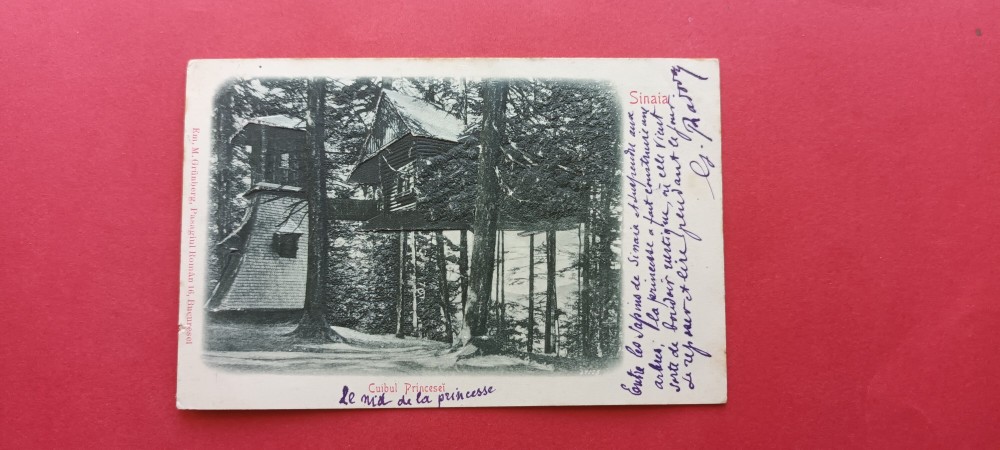 Sinaia
Entre les Sapins de Sinaia et suspendu aux
arbres, la princesse a fait construire une
sorte de boudoir rustique, où elle vient
se reposer et lire pendant le jour
Cuibul Princesei
Le nid de la princesse
Em. M. Grünberg, Pasagiul Român 16, Bucuresci